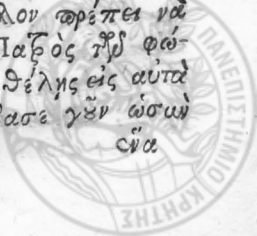 λον πρέπει νὰ
Παξὸς τῦ φώ-
θέλῃς εἰς αὐτὰ
ασε γοῦν ὡσὰν
ἕνα
ΠΑΝΕΠΙΣΤΗΜΙΟ ΚΡΗΤΗΣ